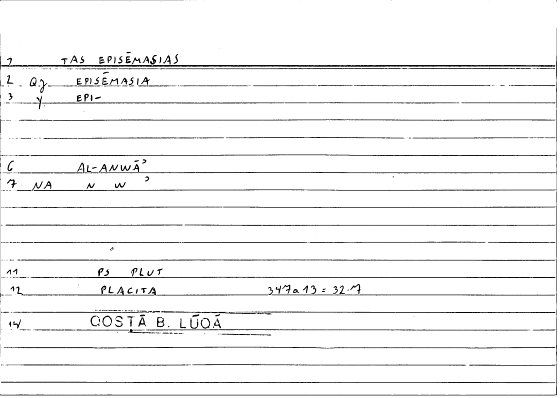 1 TAS EPISĒMASIAS
2 Qȷ EPISĒMASIA
3 y EPI-
6 AL-ANWĀʾ
7 NA N W ʾ
11 PS PLUT
12 PLACITA 347a13 = 32.7
14 QOSṬĀ B. LŪQĀ